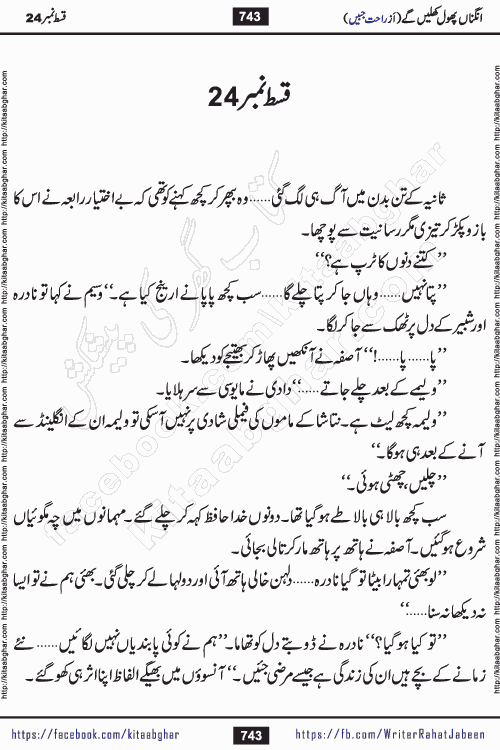 قسط نمبر 24
743
انگناں پھول کھلیں گے (از راحت جبیں)
قسط نمبر 24
ثانیہ کے تن بدن میں آگ ہی لگ گئی......وہ بپھر کر کچھ کہنے کو تھی کہ بے اختیار رابعہ نے اس کا
بازو پکڑ کر تیزی مگر رسانیت سے پوچھا۔
’’کتنے دنوں کا ٹرپ ہے؟‘‘
’’پتا نہیں......وہاں جا کر پتا چلے گا......سب کچھ پاپا نے ارینج کیا ہے۔‘‘ وسیم نے کہا تو نادرہ
اور شبیر کے دل پر ٹھک سے جا کر لگا۔
’’پا......پا......!‘‘ آصفہ نے آنکھیں پھاڑ کر بھتیجے کو دیکھا۔
’’ولیمے کے بعد چلے جاتے......‘‘ دادی نے مایوسی سے سر ہلایا۔
’’ولیمہ کچھ لیٹ ہے۔ نتاشا کے ماموں کی فیملی شادی پر نہیں آ سکی تو ولیمہ ان کے انگلینڈ سے
آنے کے بعد ہی ہو گا۔‘‘
’’چلیں، چھٹی ہوئی۔‘‘
سب کچھ بالا ہی بالا طے ہو گیا تھا۔ دونوں خدا حافظ کہہ کر چلے گئے۔ مہمانوں میں چہ مگوئیاں
شروع ہو گئیں۔ آصفہ نے ہاتھ پر ہاتھ مار کر تالی بجائی۔
’’لو بھئی تمہارا بیٹا تو گیا نادرہ......دلہن خالی ہاتھ آئی اور دولہا لے کر چلی گئی۔ بھئی ہم نے تو ایسا
نہ دیکھا نہ سنا......‘‘
’’تو کیا ہو گیا؟‘‘ نادرہ نے ڈوبتے دل کو تھاما۔ ’’ہم نے کوئی پابندیاں نہیں لگائیں......نئے
زمانے کے بچے ہیں ان کی زندگی ہے جیسے مرضی جئیں۔‘‘ آنسوؤں میں بھیگے الفاظ اپنا اثر ہی کھو گئے۔
http://kitaabghar.com http://kitaabghar.com http://kitaabghar.com http://kitaabghar.com http://kitaabghar.com http://kitaabghar.com
http://kitaabghar.com http://kitaabghar.com http://kitaabghar.com http://kitaabghar.com http://kitaabghar.com http://kitaabghar.com
کتاب گھر کی پیشکش
kitaabghar.com
facebook.com/kitaabghar
https://facebook.com/kitaabghar
743
https://fb.com/WriterRahatJabeen